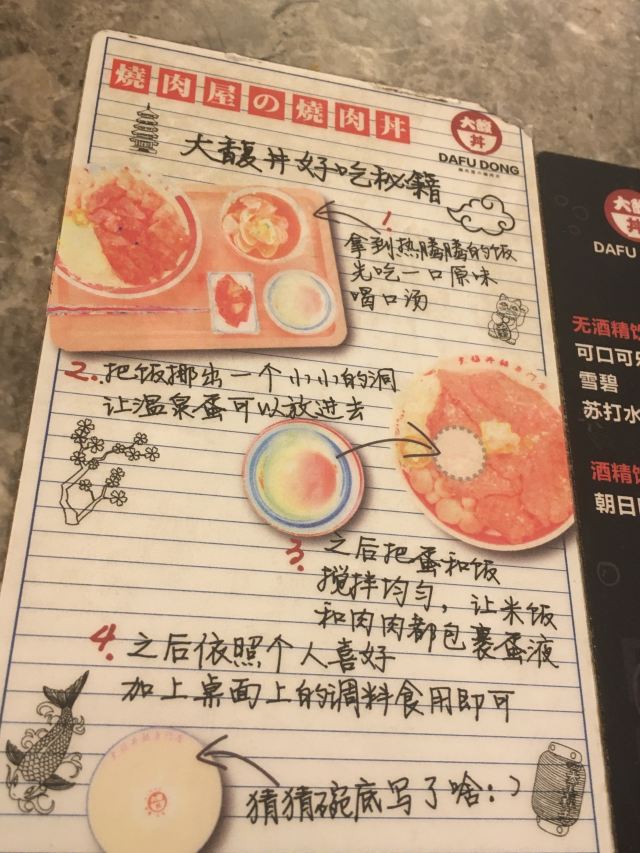 燒肉屋の燒肉丼
大馥丼
DAFU DONG
大馥丼好吃秘籍
1.
拿到热腾腾的饭
先吃一口原味
喝口汤
2. 把饭挪出一个小小的洞
让温泉蛋可以放进去
3. 之后把蛋和饭
搅拌均匀，让米饭
和肉肉都包裹蛋液
4. 之后依照个人喜好
加上桌面上的调料食用即可
猜猜碗底写了啥:)
大馥丼
DAFU
无酒精饮
可口可乐
雪碧
苏打水
酒精饮
朝日